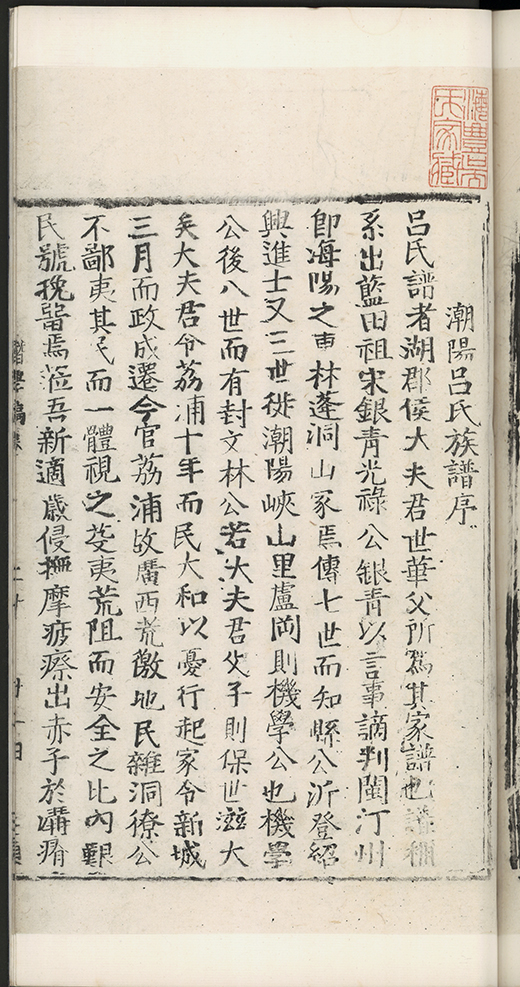 潮陽呂氏族譜序
呂氏譜者湖郡侯大夫君世華父所爲其家譜也譜稱
系出藍田祖宋銀青光祿公銀青以言事謫判閩汀州
卽海陽之東林蓬洞山家焉傳七世而知縣公沂登紹
興進士又三世徙潮陽峽山里盧岡則機學公也機學
公後八世而有封文林公若大夫君父子則保世滋大
矣大夫君令荔浦十年而民大和以憂行起家令新城
三月而政成遷今官荔浦故廣西荒徼地民雜洞獠公
不鄙夷其民而一體視之芟夷荒阻而安全之比內艱
民號挽留焉蒞吾新適歲侵撫摩瘡瘵出赤子於溝瘠